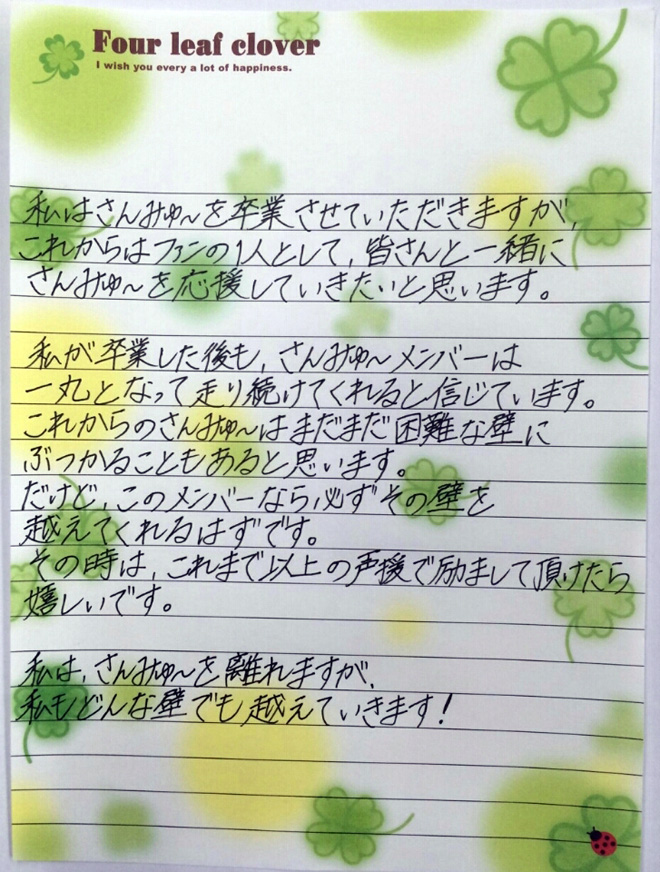 Four leaf clover
I wish you every a lot of happiness.
私はさんみゅ〜を卒業させていただきますが、
これからはファンの1人として、皆さんと一緒に
さんみゅ〜を応援していきたいと思います。
私が卒業した後も、さんみゅ〜メンバーは
一丸となって走り続けてくれると信じています。
これからのさんみゅ〜はまだまだ困難な壁に
ぶつかることもあると思います。
だけど、このメンバーなら必ずその壁を
越えてくれるはずです。
その時は、これまで以上の声援で励まして頂けたら
嬉しいです。
私は、さんみゅ〜を離れますが、
私もどんな壁でも越えていきます!